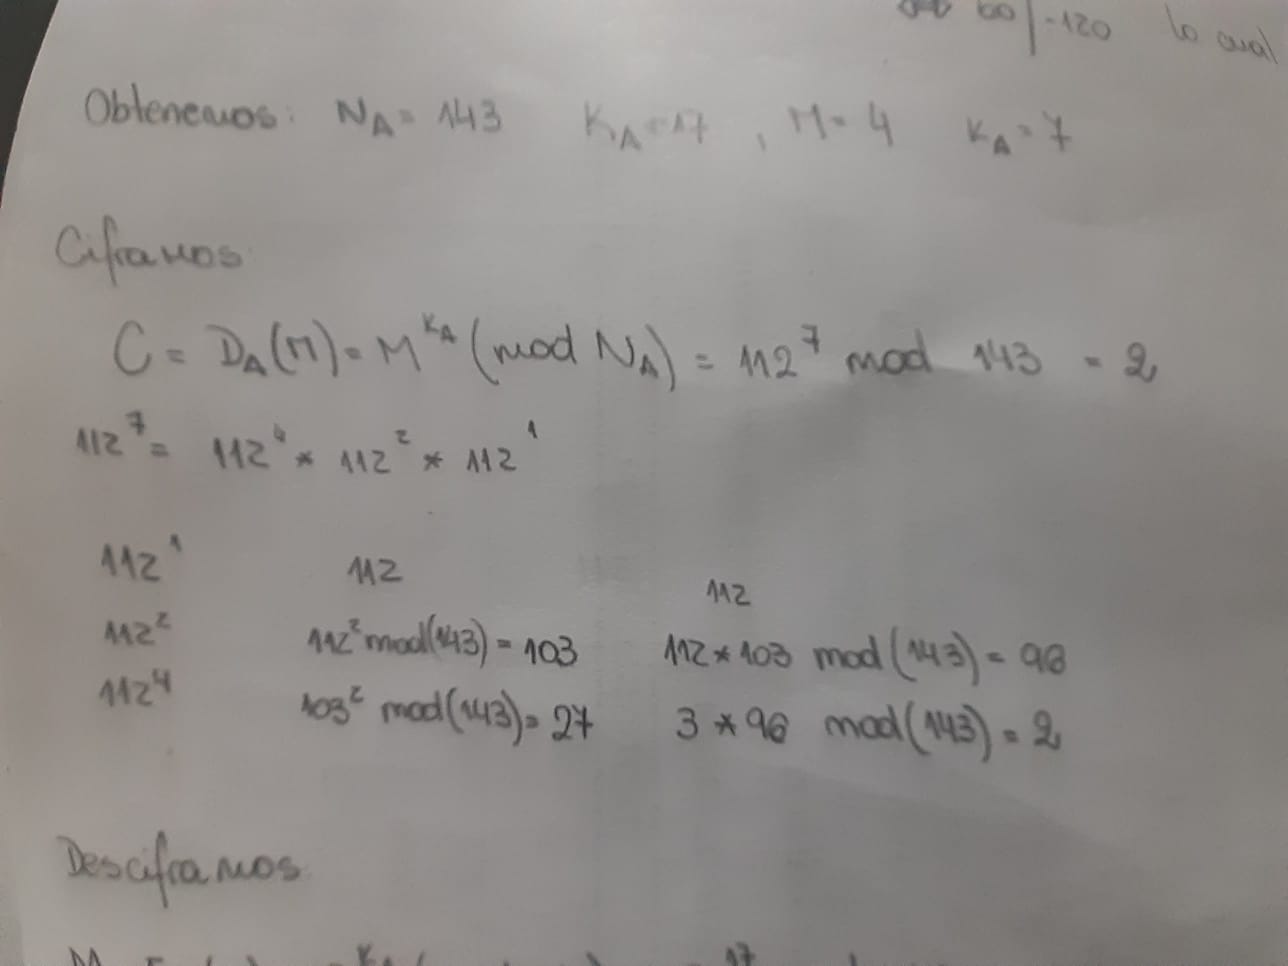 60 | -120 lo cual
Obtenemos: N_A = 143 K_A = 17 , M = 4 K_A = 7
Ciframos
C = D_A(M) = M^K_A (mod N_A) = 112^7 mod 143 = 2
112^7 = 112^4 * 112^2 * 112^1
112^1 112 112
112^2 112^2 mod(143) = 103 112 * 103 mod (143) = 96
112^4 103^2 mod(143) = 27 3 * 96 mod (143) = 2
Desciframos